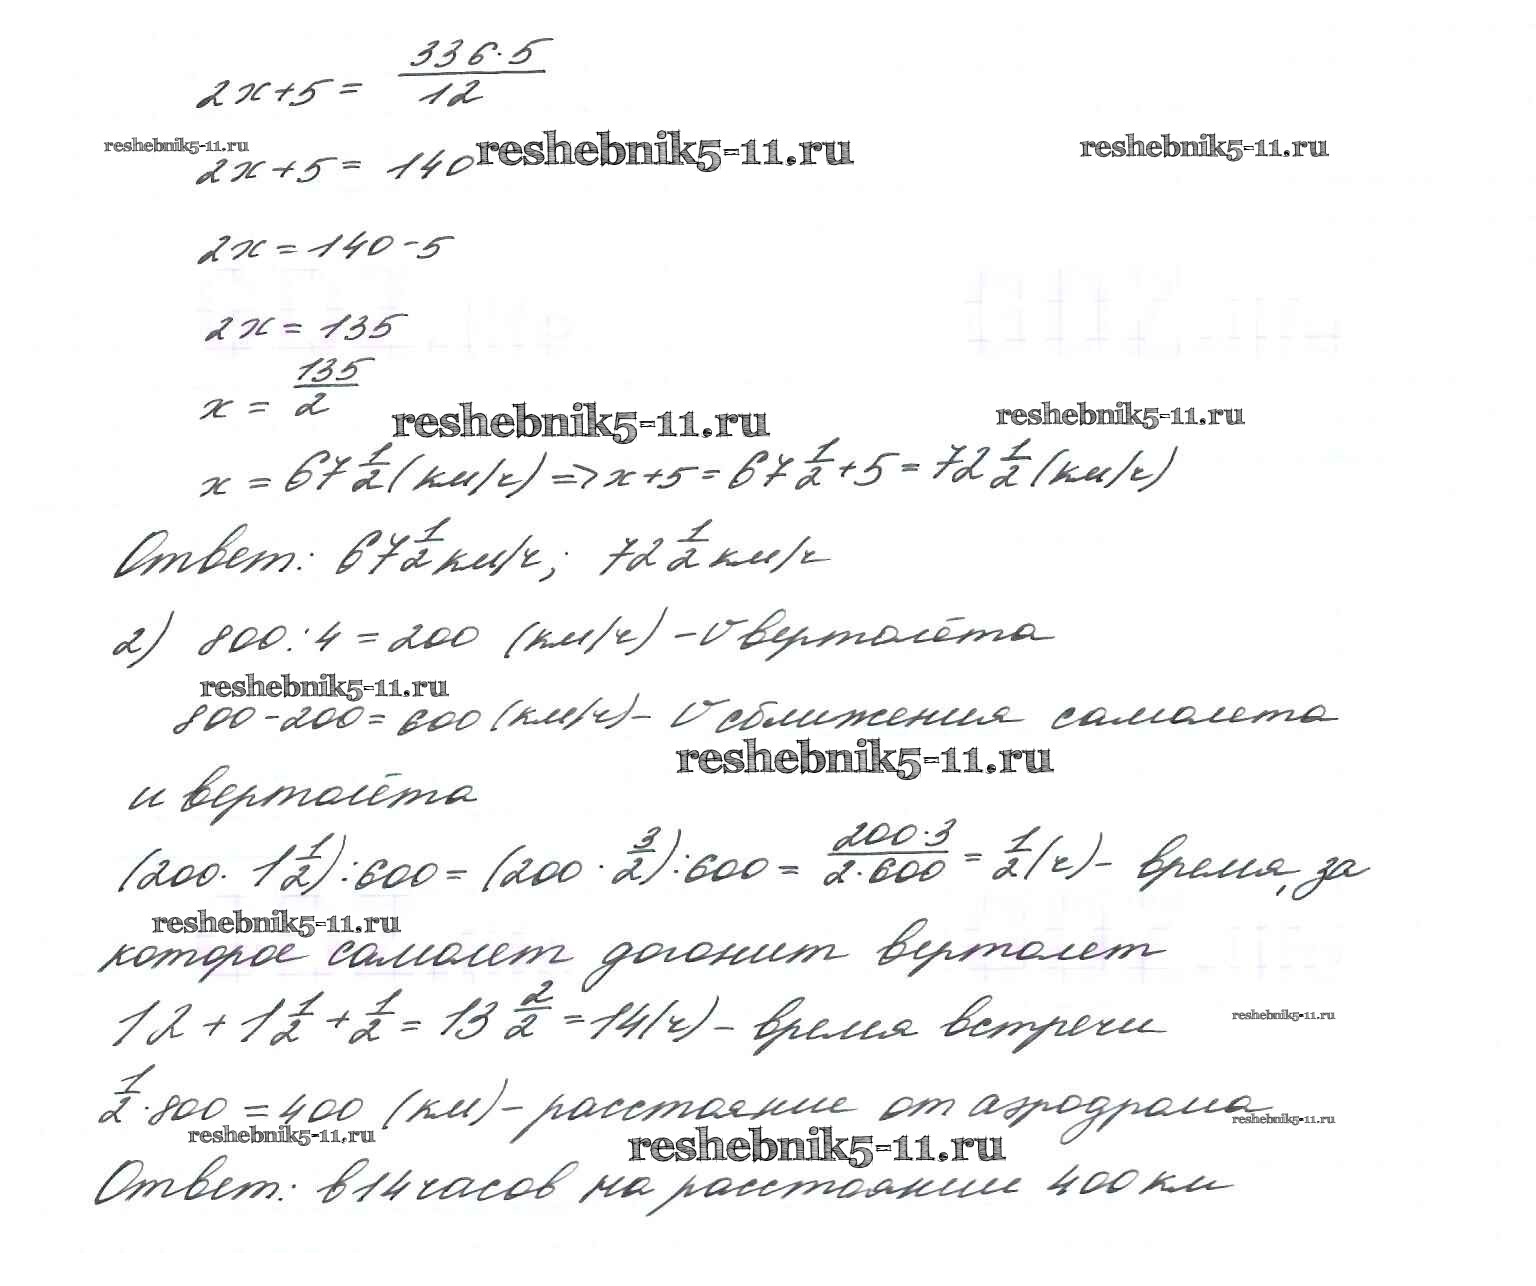 2x+5 = 336·5/12
reshebnik5-11.ru reshebnik5-11.ru reshebnik5-11.ru
2x+5 = 140
2x = 140-5
2x = 135
x = 135/2
reshebnik5-11.ru reshebnik5-11.ru
x = 67 1/2 (км/ч) => x+5 = 67 1/2 + 5 = 72 1/2 (км/ч)
Ответ: 67 1/2 км/ч; 72 1/2 км/ч
2) 800:4 = 200 (км/ч) - V вертолёта
reshebnik5-11.ru
800-200 = 600 (км/ч) - V сближения самолета
reshebnik5-11.ru
и вертолёта
(200· 1 1/2):600 = (200 · 3/2):600 = 200·3/2·600 = 1/2 (ч) - время, за
reshebnik5-11.ru
которое самолет догонит вертолет
12 + 1 1/2 + 1/2 = 13 2/2 = 14(ч) - время встречи
reshebnik5-11.ru
1/2·800 = 400 (км) - расстояние от аэродрома
reshebnik5-11.ru
reshebnik5-11.ru reshebnik5-11.ru
Ответ: в 14 часов на расстоянии 400 км